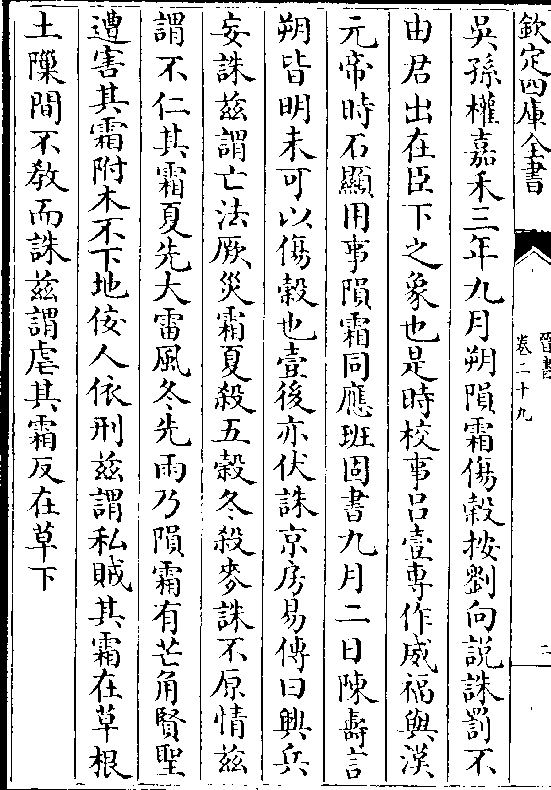 欽定四庫全書
晉書
卷二十九
二
吳孫權嘉禾三年九月朔隕霜傷穀按劉向説誅罰不
由君出在臣下之象也是時校事吕壹專作威福與漢
元帝時石顯用事隕霜同應班固書九月二日陳壽言
朔皆明未可以傷穀也壹後亦伏誅京房易傳曰興兵
妄誅兹謂亡法厥災霜夏殺五穀冬殺麥誅不原情兹
謂不仁其霜夏先大雷風冬先雨乃隕霜有芒角賢聖
遭害其霜附木不下地佞人依刑兹謂私賊其霜在草根
土隟間不教而誅兹謂虐其霜反在草下